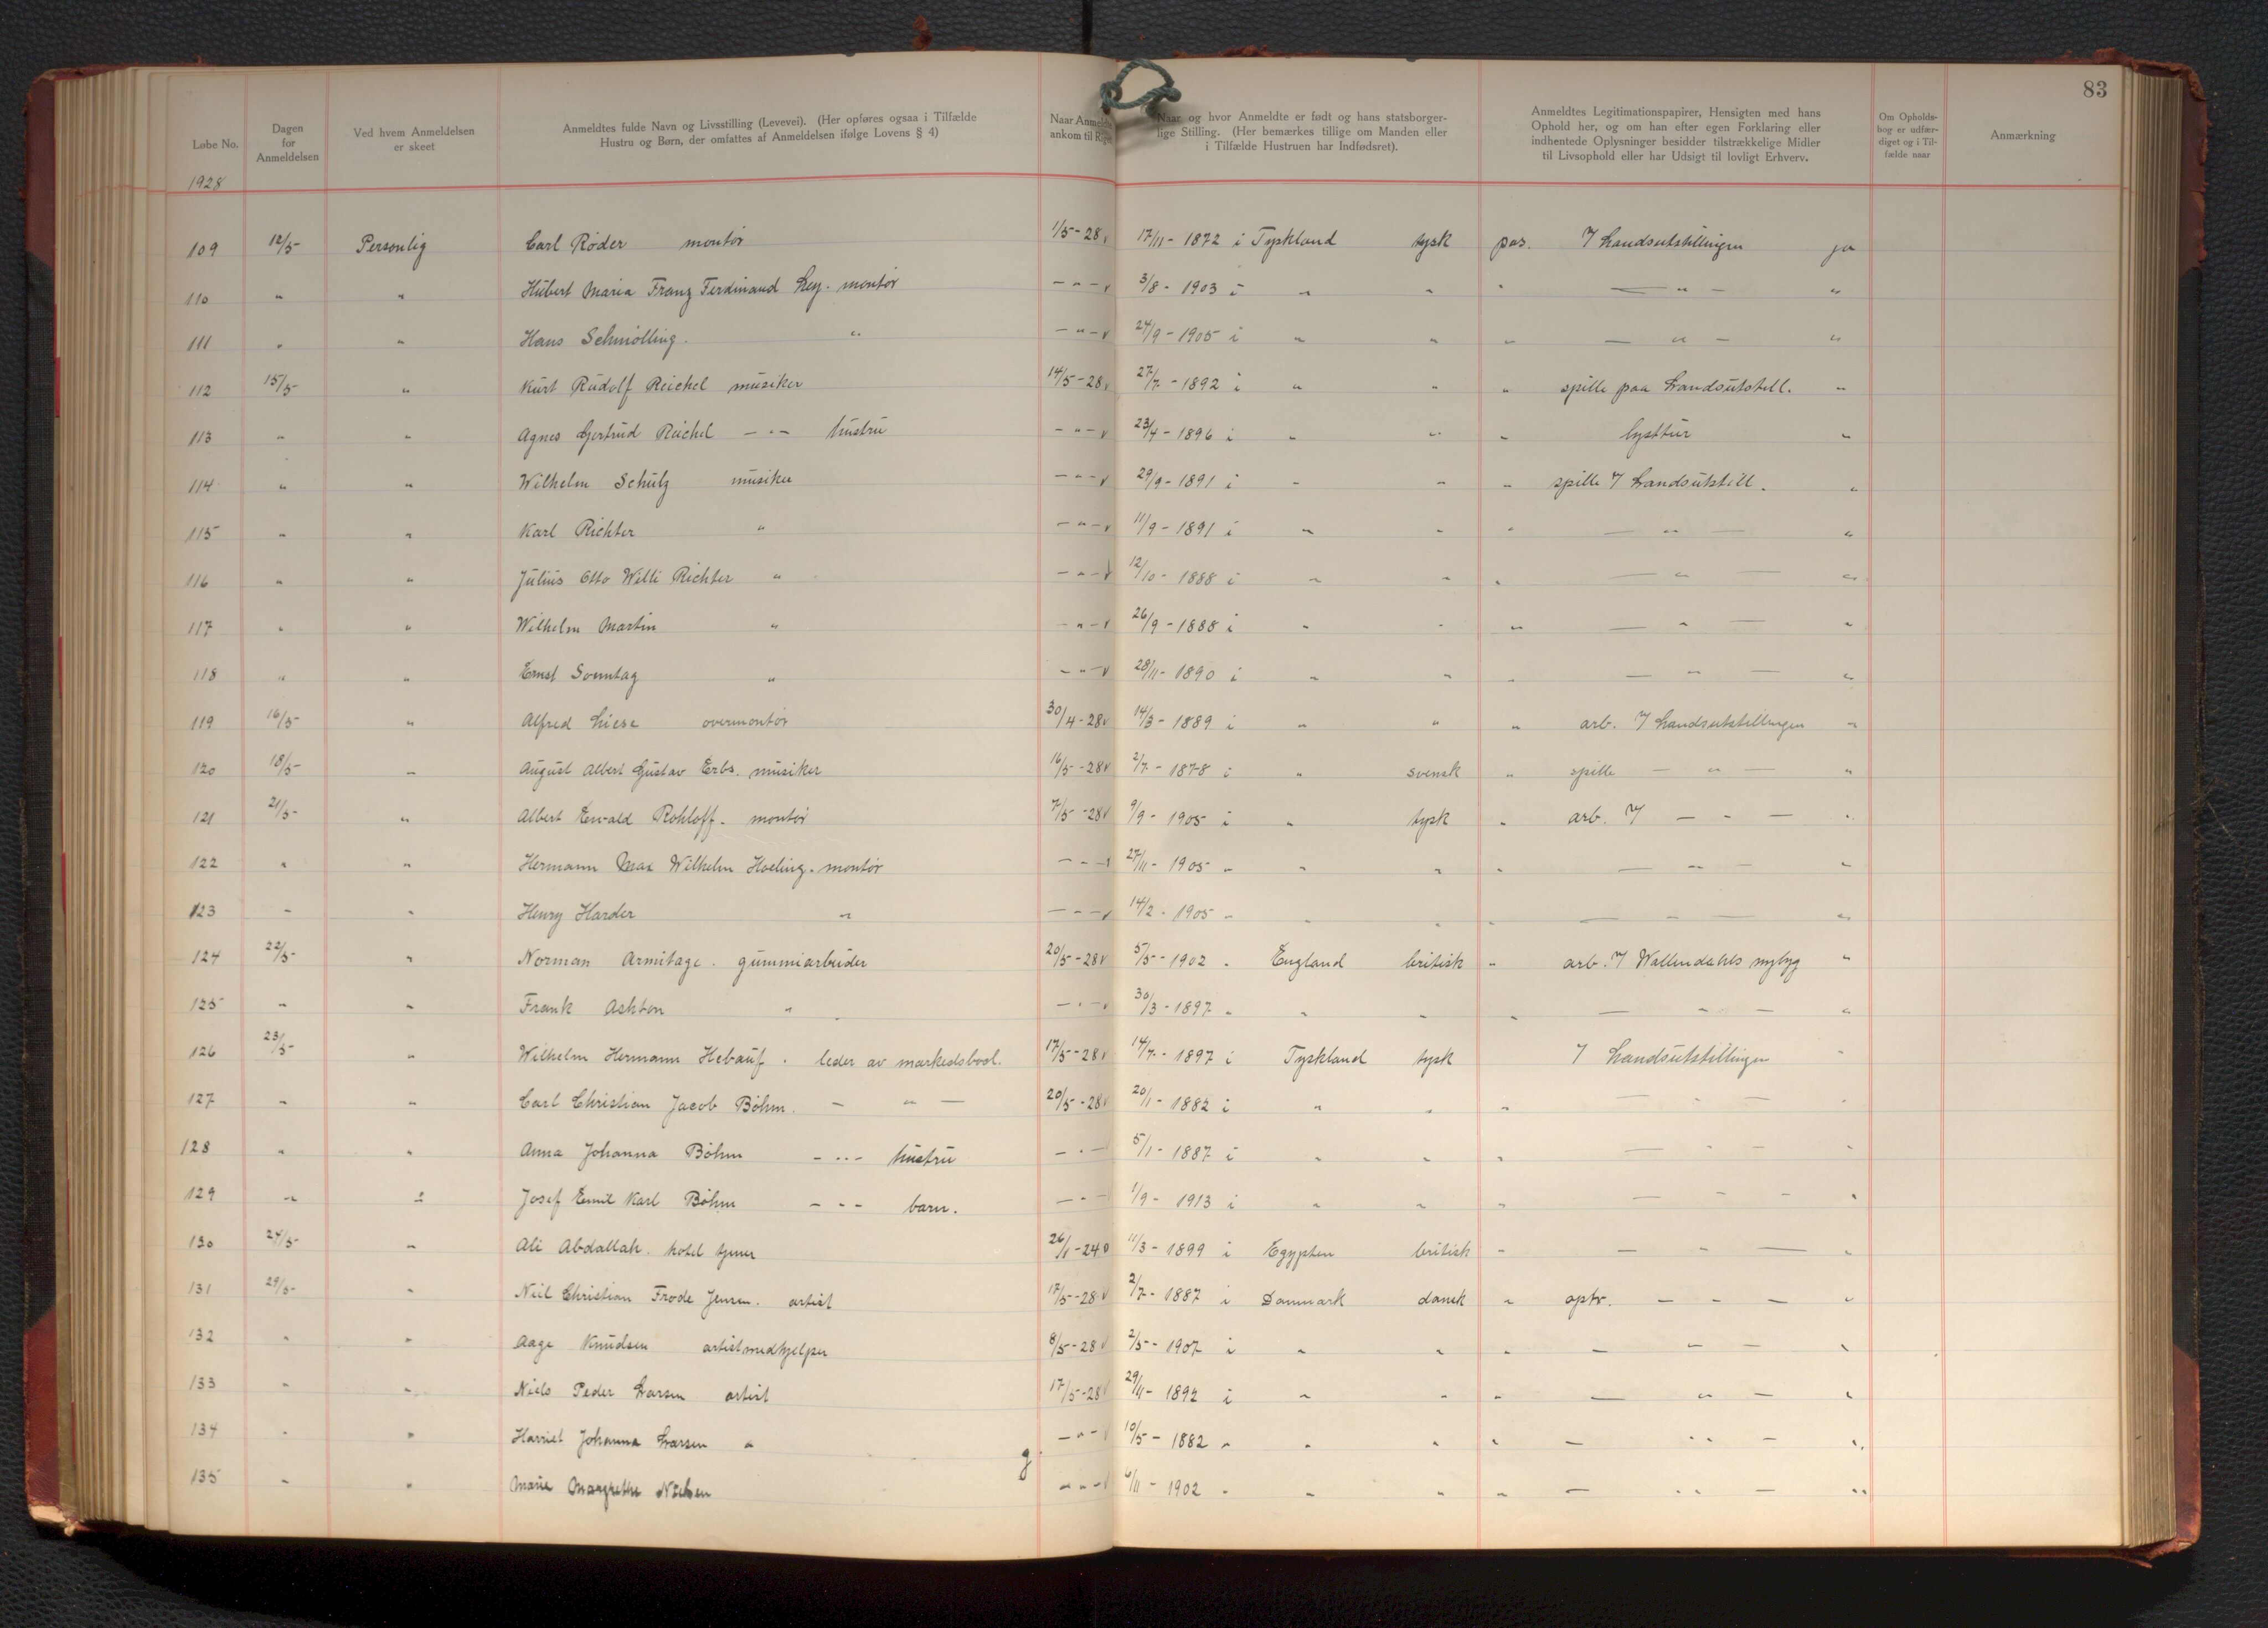 83
Løbe No.
Dagen for Anmeldelsen
Ved hvem Anmeldelsen er skeet
Anmeldtes fulde Navn og Livsstilling (Levevei). (Her opføres ogsaa i Tilfælde Hustru og Børn, der omfattes af Anmeldelsen ifølge Lovens § 4)
Naar Anmeldte ankom til Riget
Naar og hvor Anmeldte er født og hans statsborgerlige Stilling. (Her bemærkes tillige om Manden eller i Tilfælde Hustruen har Indfødsret).
Anmeldtes Legitimationspapirer, Hensigten med hans Ophold her, og om han efter egen Forklaring eller indhentede Oplysninger besidder tilstrækkelige Midler til Livsophold eller har Udsigt til lovligt Erhverv.
Om Opholdsbog er udfærdiget og i Tilfælde naar
Anmærkning
1928
109 12/5- Personlig Carl Røder montør 1/5-28 17/11-1872 i Tyskland tysk pas. Landsutstillingen ja
110 " " Hubert Maria Franz Ferdinand Ley. montør - " - 3/8-1903 i " " " - " - "
111 " " Hans Schmölling. " - " - 24/9-1905 i " " " - " - "
112 15/5- " Kurt Rudolf Reichel musiker 14/5-28 27/7-1892 i " " " spille paa Landsutstill. "
113 " " Agnes Gertrud Reichel - " - hustru - " - 23/4-1896 i " " " lysttur "
114 " " Wilhelm Schulz musiker - " - 29/9-1891 i " " " spille Landsutstill. "
115 " " Karl Richter " - " - 11/9-1891 i " " " - " - "
116 " " Julius Otto Willi Richter " - " - 12/10-1888 i " " " - " - "
117 " " Wilhelm Martin " - " - 26/9-1888 i " " " - " - "
118 " " Ernst Sonntag " - " - 28/11-1890 i " " " - " - "
119 16/5- " Alfred Liese overmontør 30/4-28 14/3-1889 i " " " arb. Landsutstillingen "
120 18/5- " August Albert Gustav Erbs. musiker 16/5-28 2/7-1878 i " svensk " spille - " - "
121 21/5- " Albert Ewald Rohloff. montør 7/5-28 9/9-1905 i " tysk " arb. - " - "
122 " " Hermann Max Wilhelm Hoeling. montør - " - 27/11-1905 " " " " - " - "
123 " " Henry Harder " - " - 14/2-1905 " " " " - " - "
124 22/5- " Norman Armitage. gummiarbeider 20/5-28 5/5-1902 " England britisk " arb. Wallendahls nybyg "
125 " " Frank Ashton " - " - 30/3-1897 " " " " - " - "
126 23/5- " Wilhelm Hermann Hebauf. leder av markedsbod. 17/5-28 14/7-1897 i Tyskland tysk Landsutstillingen "
127 " " Carl Christian Jacob Böhm. - " - 20/5-28 20/1-1882 i " " " - " - "
128 " " Anna Johanna Böhm - " - hustru - " - 5/1-1887 i " " " - " - "
129 " " Josef Emil Karl Böhm - " - barn. - " - 1/9-1913 i " " " - " - "
130 24/5- " Ali Abdallah. hotel tjener 26/1-24 11/3-1899 i Egypten britisk " - " - "
131 29/5- " Niel Christian Frode Jensen. artist 17/5-28 2/7-1887 i Danmark dansk " optr. - " - "
132 " " Aage Knudsen artistmedhjelper 8/5-28 2/5-1907 i " " " - " - "
133 " " Niels Peder Larsen artist 17/5-28 29/11-1892 i " " " - " - "
134 " " Harriet Johanna Larsen " - " - 10/5-1882 " " " " - " - "
135 " " Marie Margrethe Nielsen - " - 6/11-1902 " " " " - " - "